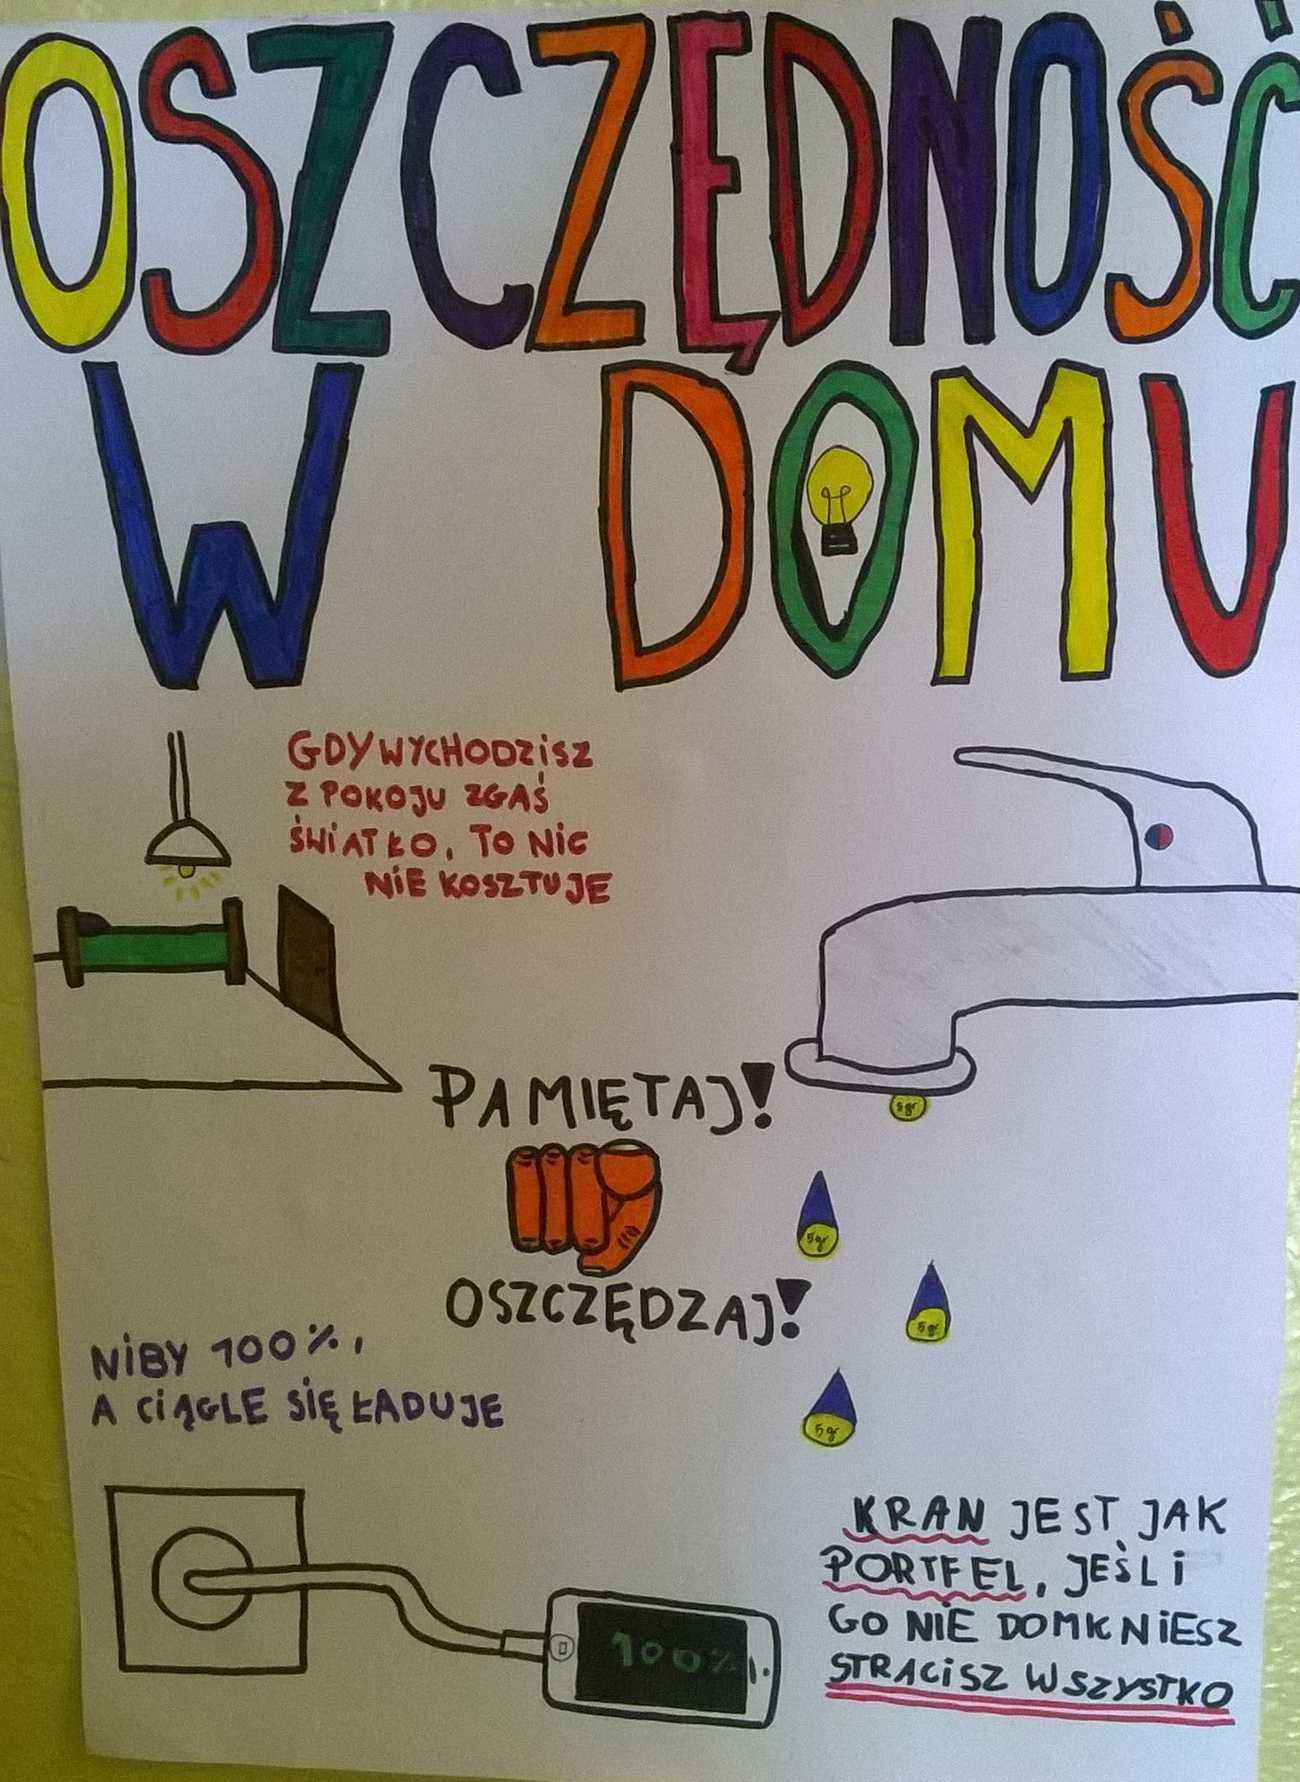 OSZCZĘDNOŚĆ
W DOMU
GDY WYCHODZISZ
Z POKOJU ZGAŚ
ŚWIATŁO, TO NIC
NIE KOSZTUJE
PAMIĘTAJ!
OSZCZĘDZAJ!
5gr
5gr
5gr
5gr
NIBY 100%,
A CIĄGLE SIĘ ŁADUJE
100%
KRAN JEST JAK
PORTFEL, JEŚLI
GO NIE DOMKNIESZ
STRACISZ WSZYSTKO